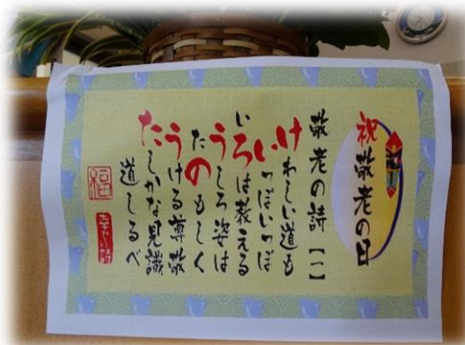 祝敬老の日
敬老の詩【一】
けわしい道も
いっぽいっぽ
いろは教える
うしろ姿は
たのもしく
うける尊敬
たしかな見識
道しるべ